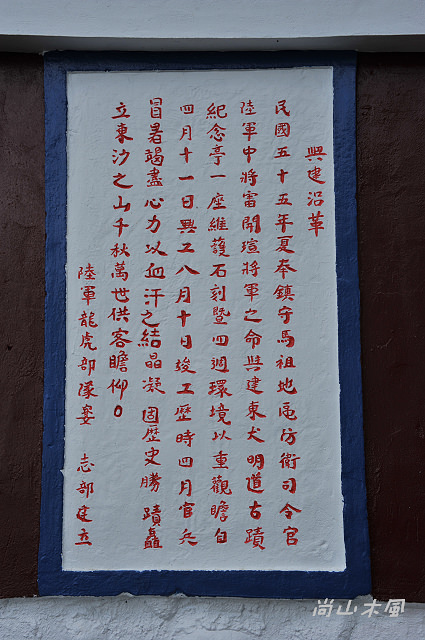 興建沿革
民國五十五年夏奉鎮守馬祖地區防衛司令官
陸軍中將雷開瑄將軍之命興建東犬明道古蹟
紀念亭一座維護石刻暨四週環境以重觀瞻自
四月十一日興工八月十日竣工歷時四月官兵
冒暑竭盡心力以血汗之結晶凝固歷史勝蹟矗
立東沙之山千秋萬世供客瞻仰。
陸軍龍虎部隊宴 志部建立
尚山木風